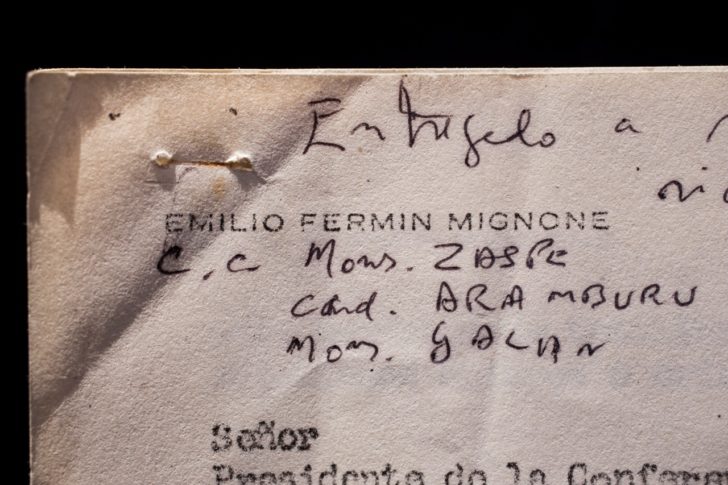 Entrugelo a
EMILIO FERMIN MIGNONE
c.c Mons. ZASPE
Card. ARAMBURU
Mons. GALAN
Señor
Presidente de la Confere